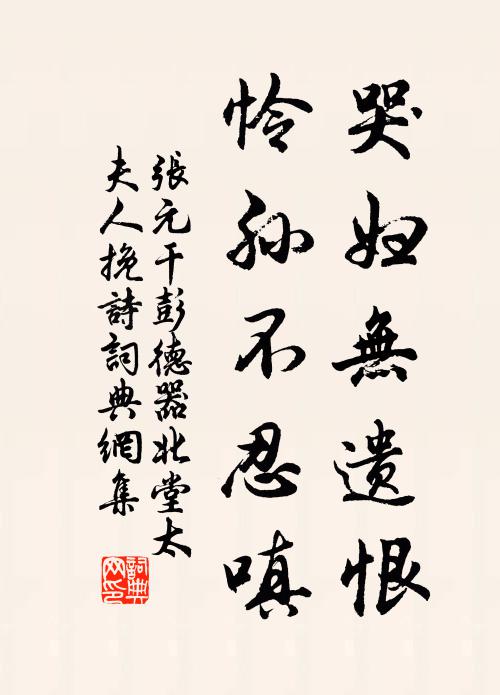 哭妇無遗恨
怜孙不忍嗔
張元干彭德器北堂太
夫人挽詩詞典網集
詞典网印